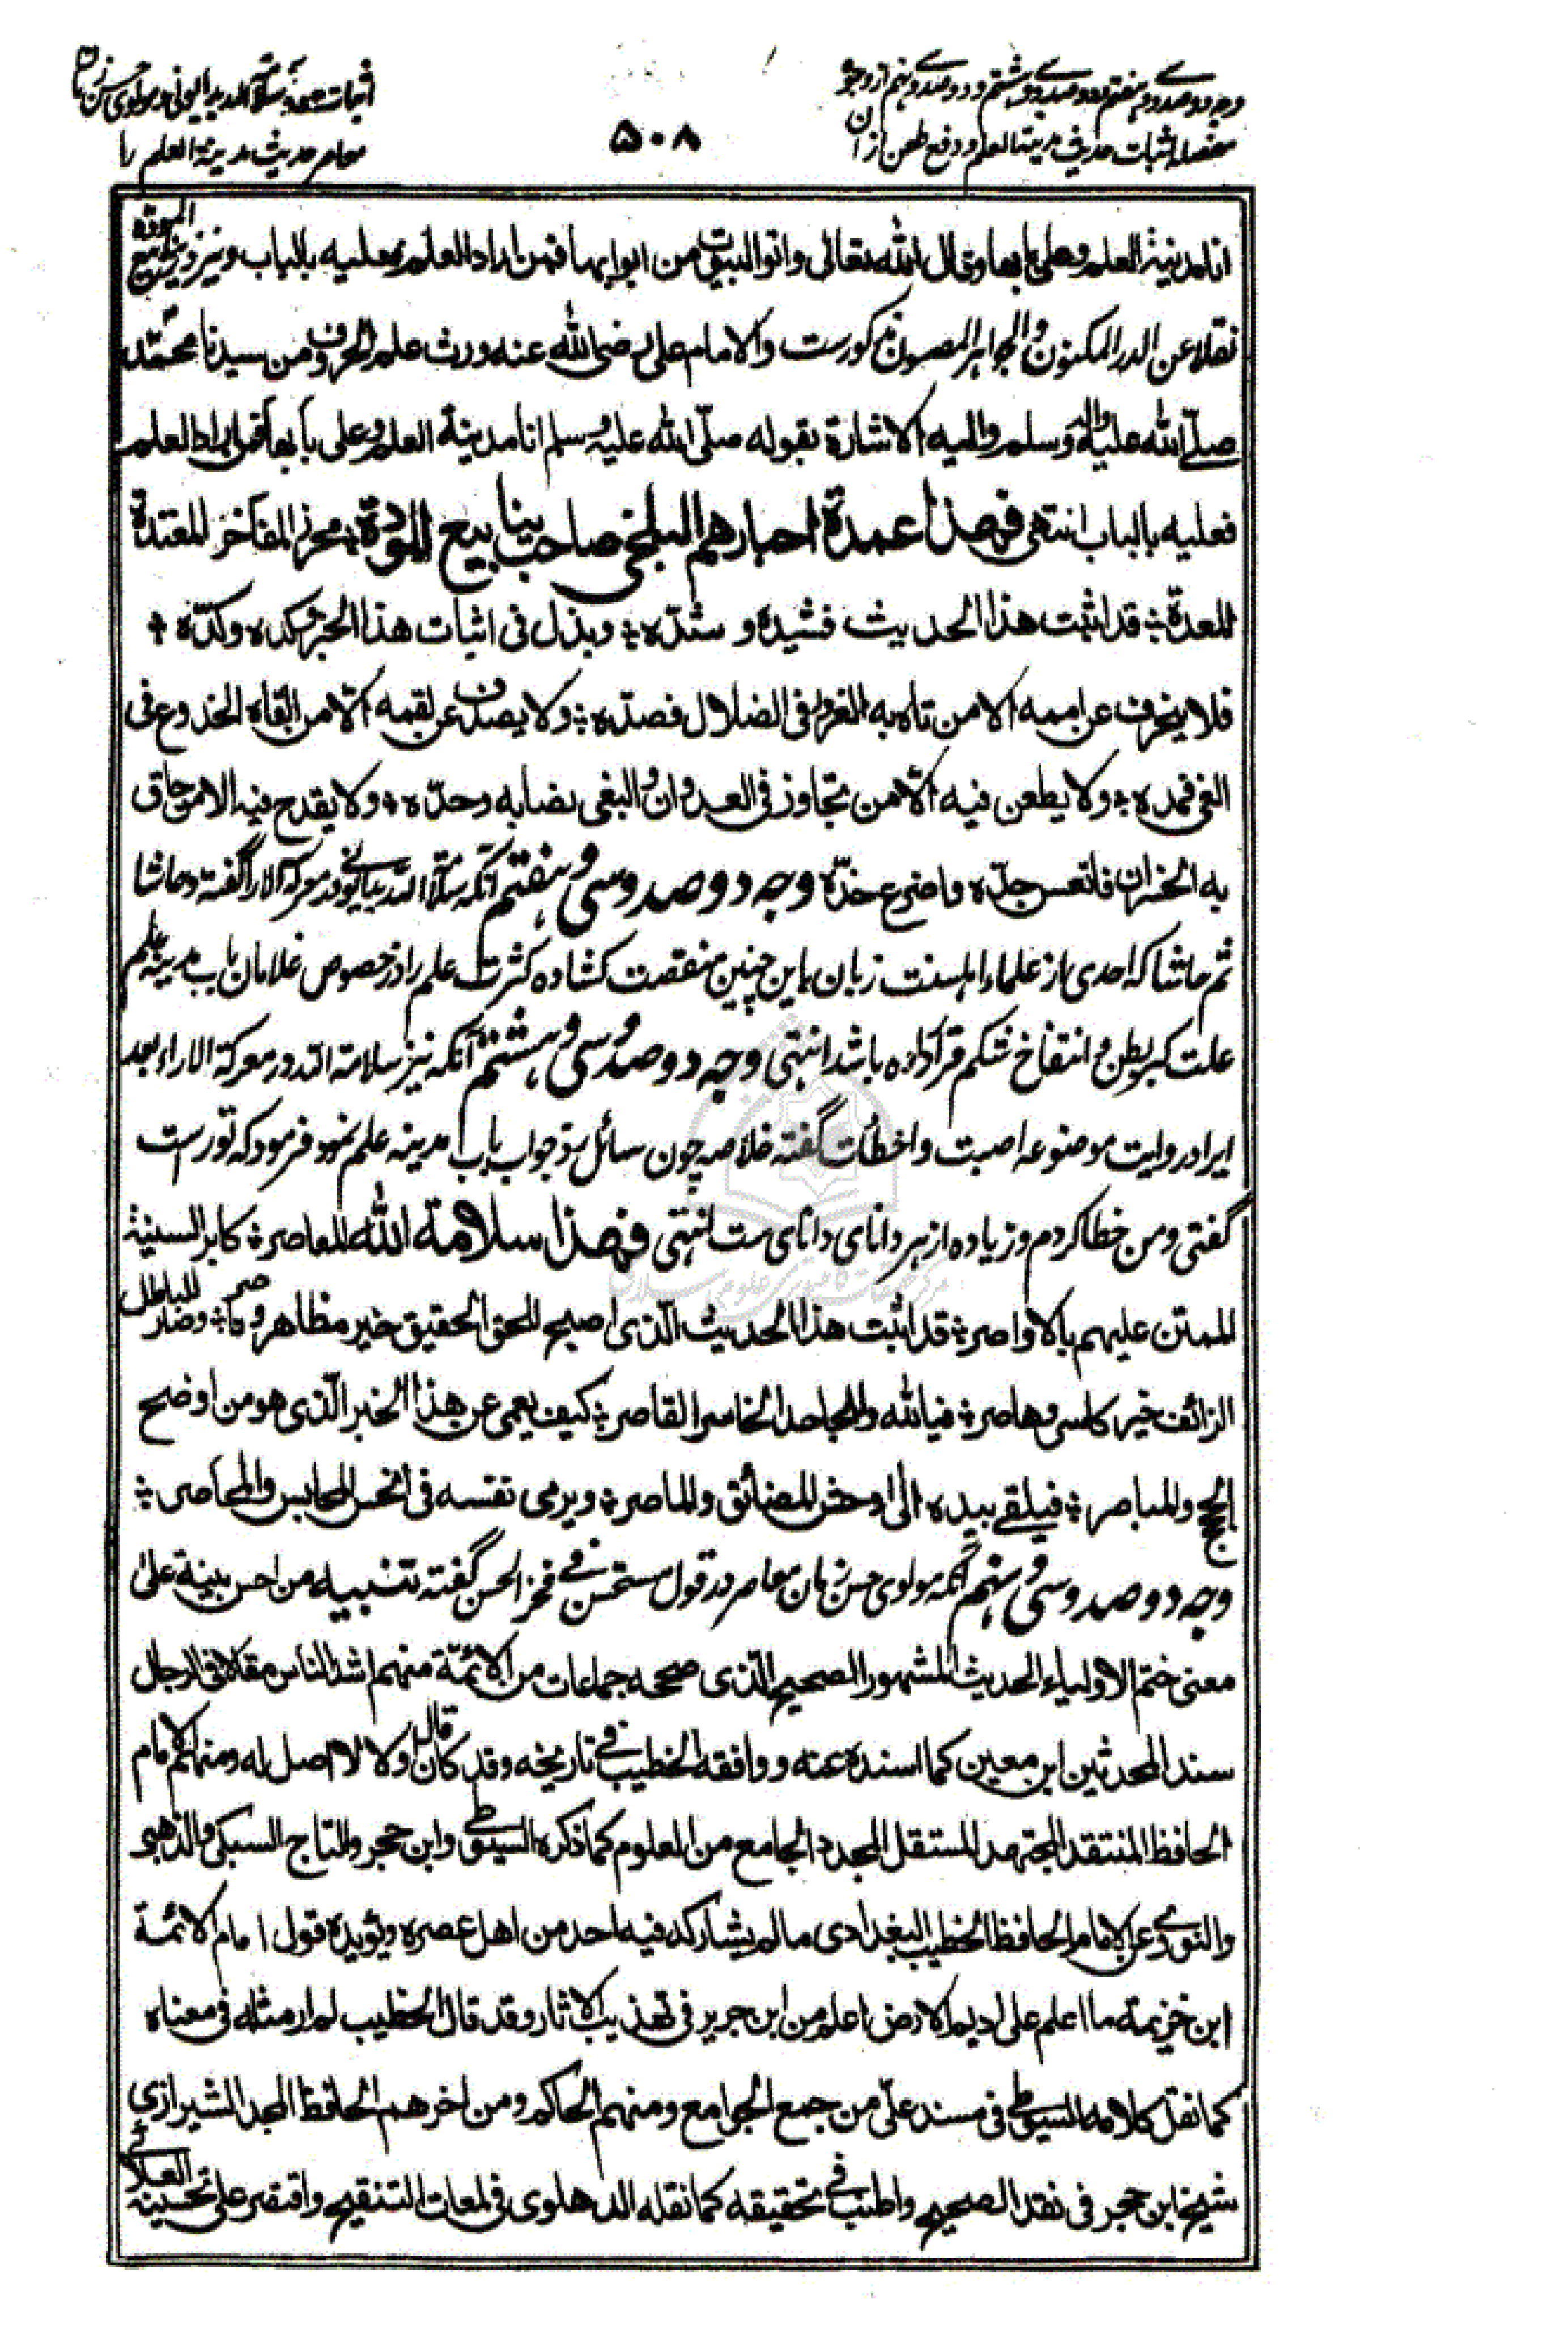 وجه دوصد و سی و هفتم و دوصد و سی و هشتم و دوصد و سی و نهم از وجوه
مفصله اثبات حدیث مدینة العلم و دفع طعن از ان
۵۰۸
اثبات سلامة الله بدایونی و مولوی حسن زمان
معاصر حدیث مدینة العلم را
انا مدینة العلم وعلی بابها وقال الله تعالی واتوا البیوت من ابوابها فمن اراد العلم فعلیه بالباب ونیز در ینابیع المودة
نقلا عن الدر المکنون والجواهر المصون مذکورست والامام علی رضی الله عنه ورث علم الحروف من سیدنا محمّد
صلّی الله علیه واله وسلم والیه الاشارة بقوله صلّی الله علیه وسلم انا مدینة العلم وعلی بابها فمن اراد العلم
فعلیه بالباب انتهی فهذا عمدة احبارهم البلخی صاحب ینابیع المودة؛ محرز المفاخر المعتدة
المعدة؛ قد اثبت هذا الحدیث فشیده و شدّه؛ وبذل فی اثبات هذا الخبر وکده وکدّه؛
فلا ینحرف عن اممه الا من تاه به الغرور فی الضلال فصدّه؛ ولا یصدف عن لقمه الّا من القاه الخدوع فی
الغی فمده؛ ولا یطعن فیه الّا من تجاوز فی العدوان والبغی نصابه وحدّه؛ ولا یقدح فیه الا من حاق
به الخسران فاتعس جدّه واضرع خدّه وجه دوصد وسی و هفتم آنکه سلامة الله بدایونی در معرکة الآرا گفته و حاشا
ثم حاشا که احدی از علماء اهلسنت زبان باین چنین منقصت کشاده کثرت علم را در خصوص غلامان باب مدینه علم
علت کبر بطن و انتفاخ شکم قرار داده باشد انتهی وجه دوصد و سی و هشتم آنکه نیز سلامة الله در معرکة الاراء بعد
ایراد روایت موضوعه اصبت و اخطأت گفته خلاصه چون سائل رد جواب باب مدینه علم نمود فرمود که تو راست
گفتی و من خطا کردم و زیاده از هر دانای دانای ست انتهی فهذا سلامة الله المعاصر؛ کابر السنیة
الممتن علیهم بالاواصر؛ قد اثبت هذا الحدیث الّذی اصبح للحق الحقیق خیر مظاهر و ناصر؛ وصار للباطل
الزائف خیر کاسر وهاصر؛ فیالله والجاحد الخاسر القاصر؛ کیف یعمی عن هذا الخبر الّذی هو من اوضح
الحجج والمباصر؛ فیلقی بیده الی اوحش المضائق والماصر؛ ویرمی نفسه فی انحس المحابس والمحاصر؛
وجه دوصد و سی و نهم آنکه مولوی حسن زمان معاصر در قول مستحسن فی فخر الحسن گفته تنبیه من احسن بینة علی
معنی ختم الاولیاء الحدیث المشهور الصحیح الّذی صححه جماعات من الائمّة منهم اشد الناس مقالا فی الرجال
سند المحدثین ابن معین کما اسنده عنه ووافقه الخطیب فی تاریخه وقد کان قال اولا لا اصل له ومنهم الامام
الحافظ المنتقد المجتهد المستقل المجدد الجامع من العلوم کما ذکره السیوطی وابن حجر والتاج السبکی والذهبی
والنووی عن الامام الحافظ الخطیب البغدادی ما لم یشارکه فیه احد من اهل عصره ویؤیده قول امام الائمة
ابن خزیمة ما اعلم علی ادیم الارض اعلم من ابن جریر فی تهذیب الاثار وقد قال الخطیب لم ار مثله فی معناه
کما نقل کلامه السیوطی فی مسند علیّ من جمع الجوامع ومنهم الحاکم ومن اخرهم الحافظ المجد الشیرازی
شیخ ابن حجر فی نقد الصحیح واطنب فی تحقیقه کما نقله الدهلوی فی لمعات التنقیح واقتصر علی تحسینه العلائی